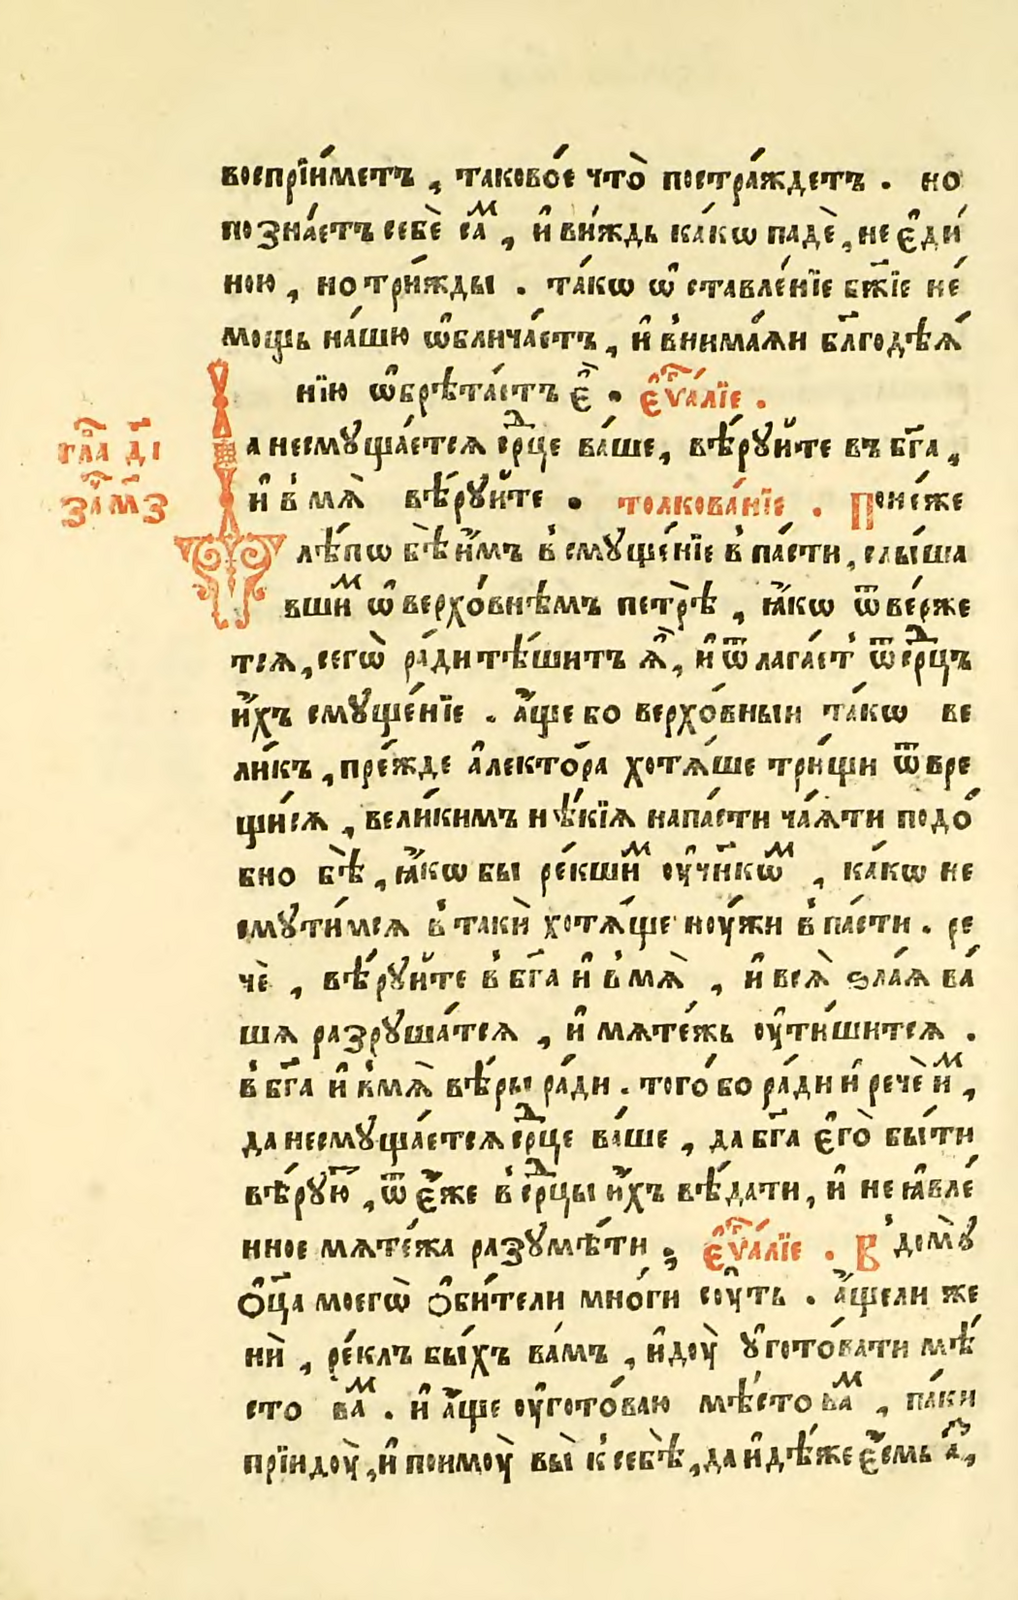 воспрїи́метъ , таково́е что̀ постра́ждетъ . но
позна́етъ себѐ саⷨ , и҆ ви́ждь ка́кѡ падѐ , не є҆ди́
ною , но три́жды . та́кѡ ѡ҆ставле́нїе бж҃їе не́
мощь на́шю ѡ҆блича́етъ , и҆ в̾нима́ѧи бл҃годѣѧ́
нїю ѡ҆брѣта́етъ є҆̀ . є҆ѵⷢ҇а́лїе .
гла҃ д҃і
Да несмꙋща́етсѧ срⷣце ва́ше , вѣ́рꙋйте въ бг҃а ,
за҃ м҃з
и҆ в̾ мѧ̀ вѣ́рꙋйте . толкова́нїе . Поне́же
лѣ́по бѣ̀ и҆̀мъ в̾ смꙋще́нїе в̾па́сти , слы́ша
вшиⷨ ѡ҆ верхо́внѣмъ петрѣ̀ , ꙗ҆́кѡ ѿве́рже
тсѧ , сегѡ̀ ра́ди тѣ́шитъ ѧ҆̀ , и҆ ѿлага́ет̾ ѿ срⷣцъ
и҆́хъ смꙋще́нїе . а҆́ще бо верхо́вныи та́кѡ ве
ли́къ , пре́жде а҆ле́кто́ра хотѧ́ше три́щи ѿвре
щи́сѧ , вели́кимъ нѣ́кїѧ напа́сти ча́ѧти подо́
бно бѣ̀ , ꙗ҆́кѡ бы ре́кшиⷨ оу҆ч҃нкѡⷨ , ка́кѡ не
смꙋти́мсѧ в̾ такѝ хотѧ́ще ноу́жи в̾па́сти . ре
чѐ , вѣ́рꙋйте в̾ бг҃а и҆ в̾ мѧ̀ , и҆ всѧ̀ ѕла́ѧ ва́
шѧ разрꙋша́тсѧ , и҆ мѧте́жь оу҆ти́шитсѧ .
в̾ бг҃а и҆ в̾мѧ̀ вѣ́ры ра́ди . того́ бо ра́ди и҆ речѐ иⷨ ,
да несмꙋща́етсѧ срⷣце ва́ше , да бг҃а є҆го̀ бы́ти
вѣ́рꙋю҆ , ѿ є҆́же в̾ срⷣцы и҆́хъ вѣ́дати , и҆ не ꙗ҆вле́
нное мѧте́жа разꙋмѣ́ти ; є҆ѵⷢ҇а́лїе . В̾ домꙋ̀
ѻ҆ц҃а моегѡ̀ ѻ҆би́тели мно́ги сꙋ́ть . а҆́щели же
нѝ , ре́клъ бы́хъ ва́мъ , и҆доу̀ ᲂу҆гото́вати мѣ́
сто ваⷨ . и҆ а҆́ще оу҆гото́ваю мѣ́сто ваⷨ , па́ки
прїидоу̀ , и҆ поимоу̀ вы̀ к̾ себѣ̀ , да и҆дѣ́же є҆́смь аⷥ ,